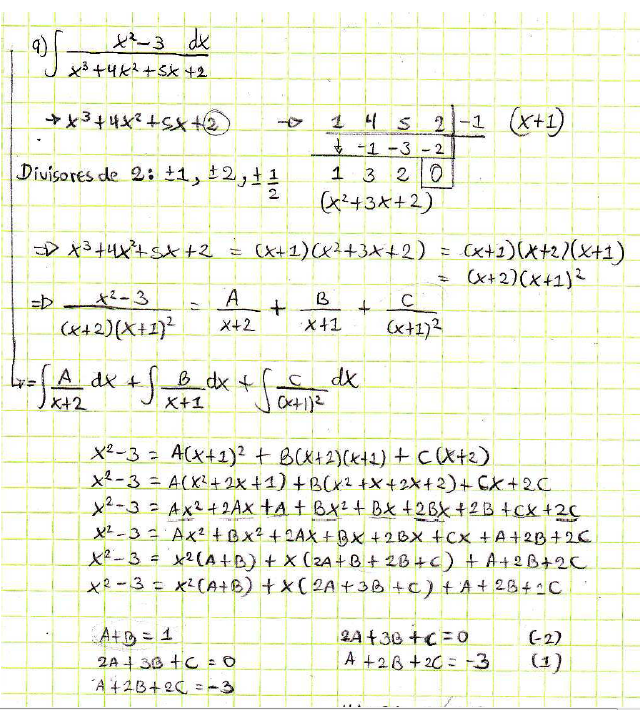 a) ∫ x²-3 dx / x³+4x²+5x+2
→ x³+4x²+5x+2 → 1 4 5 2 | -1 (x+1)
↓ -1 -3 -2
Divisores de 2: ±1, ±2, ±1/2 1 3 2 0
(x²+3x+2)
⇒ x³+4x²+5x+2 = (x+1)(x²+3x+2) = (x+1)(x+2)(x+1)
= (x+2)(x+1)²
⇒ x²-3 / (x+2)(x+1)² = A / x+2 + B / x+1 + C / (x+1)²
= ∫ A / x+2 dx + ∫ B / x+1 dx + ∫ C / (x+1)² dx
x²-3 = A(x+1)² + B(x+2)(x+1) + C(x+2)
x²-3 = A(x²+2x+1) + B(x²+x+2x+2) + Cx+2C
x²-3 = Ax²+2Ax+A+Bx²+Bx+2Bx+2B+Cx+2C
x²-3 = Ax²+Bx²+2Ax+Bx+2Bx+Cx+A+2B+2C
x²-3 = x²(A+B) + x(2A+B+2B+C) + A+2B+2C
x²-3 = x²(A+B) + x(2A+3B+C) + A+2B+2C
A+B = 1 2A+3B+C=0 (-2)
2A+3B+C = 0 A+2B+2C=-3 (1)
A+2B+2C=-3